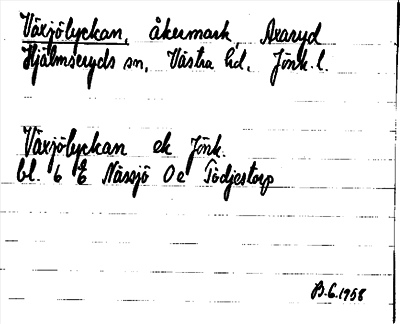 Växjölyckan, åkermark, Axaryd
Hjälmseryds sn, Västra hd, Jönk. l.
Växjölyckan ek Jönk.
bl. 6 E Nässjö 0e Tödjestorp
B.G. 1958